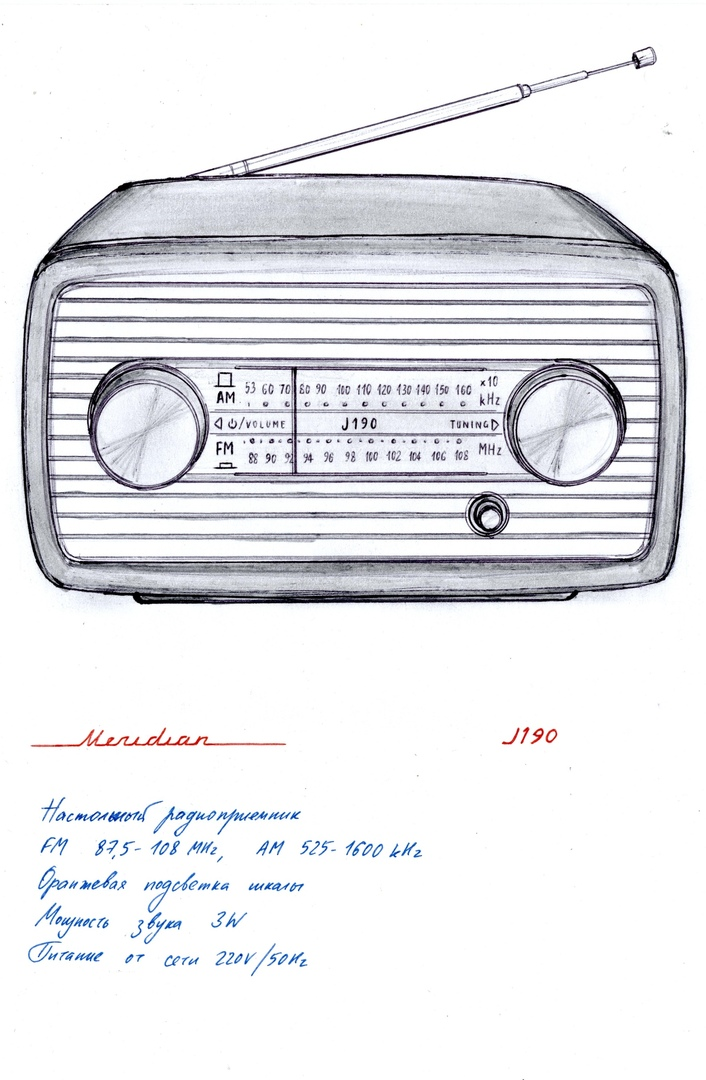 53 60 70 80 90 100 110 120 130 140 150 160 x10
AM kHz
⏻/VOLUME J190 TUNING
FM MHz
88 90 92 94 96 98 100 102 104 106 108
Meridian J190
Настольный радиоприемник
FM 87,5 - 108 MHz, AM 525 - 1600 kHz
Оранжевая подсветка шкалы
Мощность звука 3W
Питание от сети 220V/50Hz